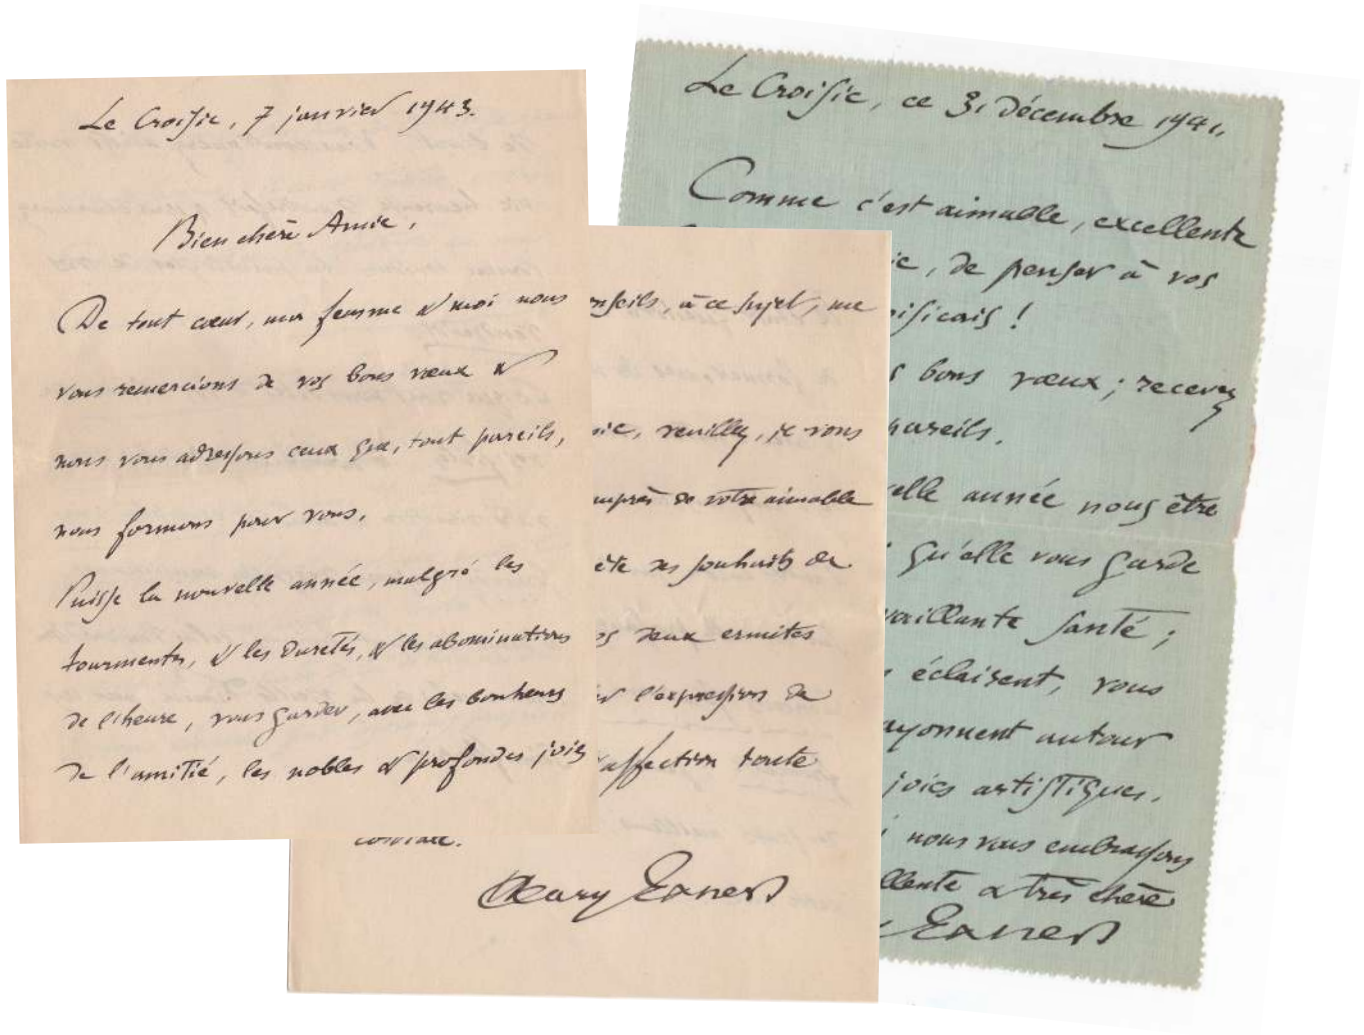 Le Croisic, 7 janvier 1943.
Bien chère Amie,
De tout cœur, ma femme & moi nous
vous remercions de vos bons vœux &
nous vous adressons ceux que, tout pareils,
nous formons pour vous.
Puisse la nouvelle année, malgré les
tourments, & les duretés, & les abominations
de l'heure, vous garder, avec les bonheurs
de l'amitié, les nobles & profondes joies
nseils, à ce sujet, me
ie, veuillez, je vous
auprès de votre aimable
ète ses souhaits de
os deux ermites
l'expression de
affection toute
cordiale.
Le Croisic, ce 31 décembre 1941.
Comme c'est aimable, excellente
ie, de penser à vos
oisicais !
s bons vœux ; recevez
pareils.
elle année nous être
qu'elle vous garde
vaillante santé ;
s éclairent, vous
ayonnent autour
joies artistiques.
nous vous embrassons
llente & très chère